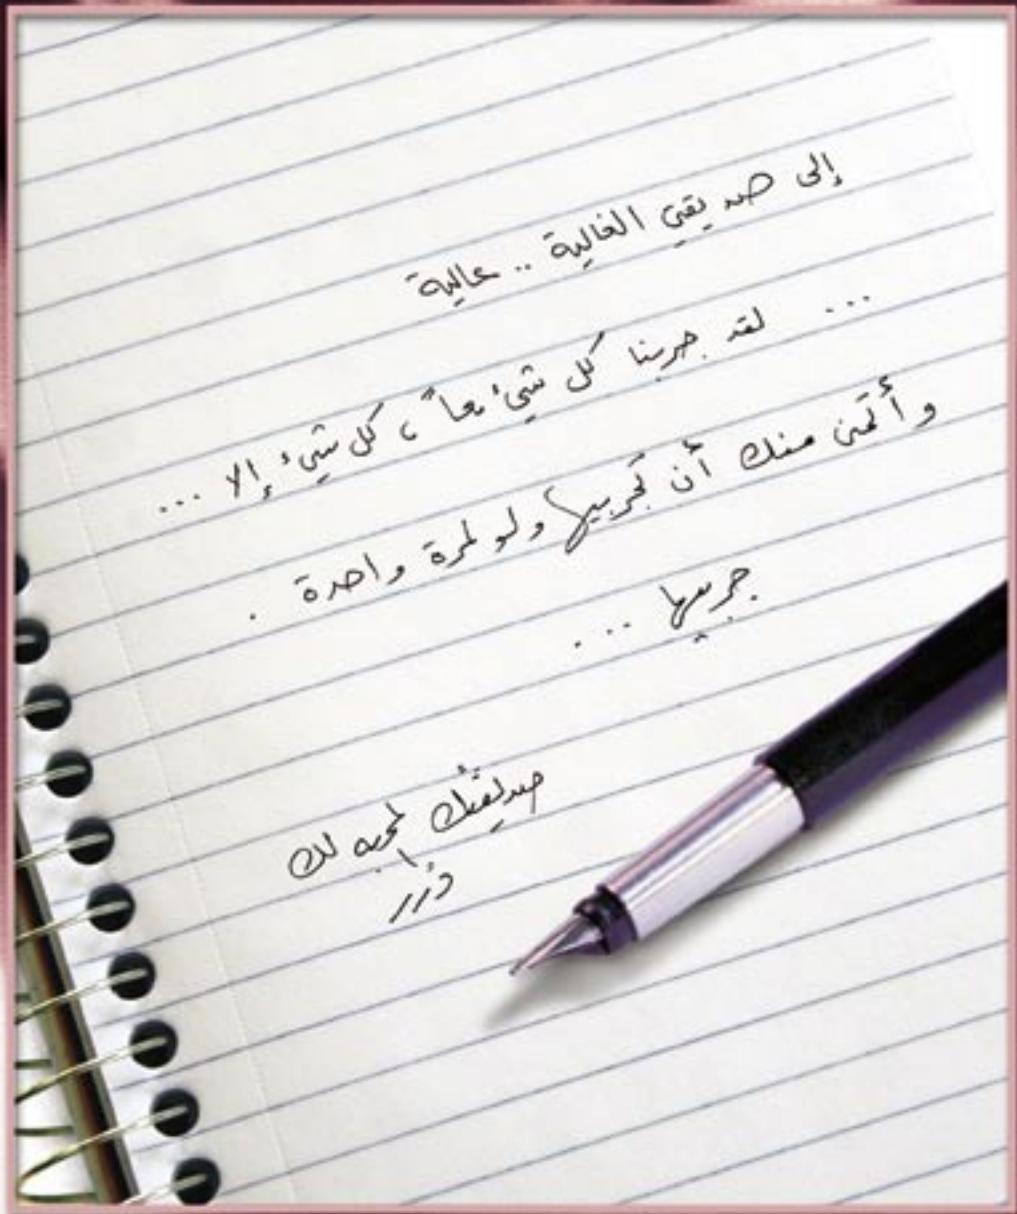 إلى صديقتي الغالية .. عالية
... لقد جربنا كل شيء معاً ، كل شيء إلا ...
وأتمنى منك أن تجربيها ولو لمرة واحدة .
جربيها ...
صديقتك المحبه لك
درر